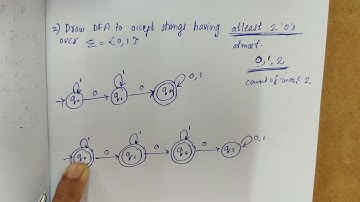 2) Draw DFA to accept strings having atleast 2 '0's
over Σ = {0,1}
atmost
0, 1, 2
count of zeros ≤ 2
1 1 0,1
q0 0 q1 0 q2
1 1 1 0,1
q0 0 q1 0 q2 0 q3